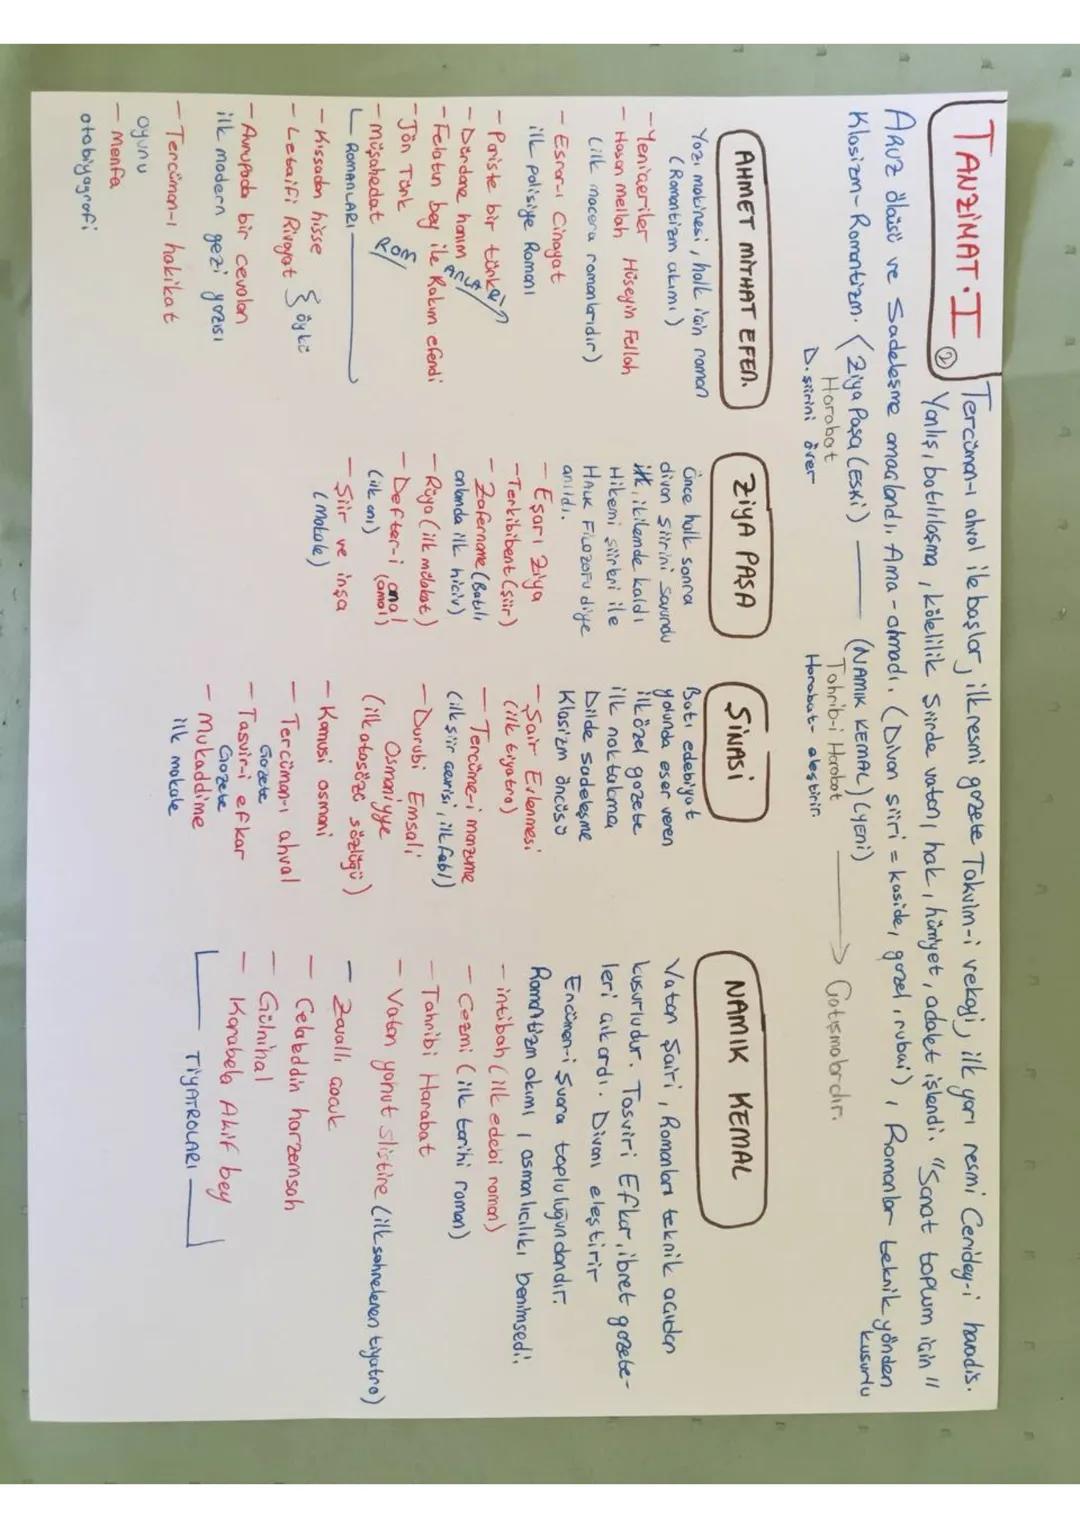 TANZİMAT · I
②
Tercüman-ı ahval ile başlar, ilk resmi gazete Takvim-i vekayi, ilk yarı resmi Ceridey-i havadis.
Yanlış, batılılaşma, kölelilik Şiirde vatan, hak, hürriyet, adalet işlendi. "Sanat toplum için"
ARUZ ölçüsü ve Sadeleşme amaçlandı. Ama-olmadı. (Divan şiiri = kaside, gazel, rubai), Romanlar teknik yönden
kusurlu
Klasizm-Romantizm. (Ziya Paşa (ESKİ) —— (NAMIK KEMAL) (YENİ)
Harabat
Tahrib-i Harabat → Çatışmalardır.
D. şiirini över
Harabat- eleştirir.
AHMET MİTHAT EFEN.
Yazı makinesi, halk için roman
(Romantizm akımı)
- Yeniçeriler
- Hasan mellah Hüseyin Fellah
(ilk macera romanlarıdır)
- Esrar-ı Cinayat
ilk Polisiye Romanı
- Pariste bir türk
- Dürdane hanım
- Felatun bey ile Rakım efendi
- Jön Türk
- müşahedat
ROMANLARI
- Kıssadan hisse
- Letaifi Rivayat } öykü
- Avrupada bir cevelan
ilk modern gezi yazısı
- Tercüman-ı hakikat
oyunu
- Menfa
otobiyagrafi
ZİYA PAŞA
Önce halk sonra
divan şiirini savundu
ikilemde kaldı
Hikemi şiirleri ile
HALK FİLOZOFU diye
anıldı.
- Eşarı Ziya
- Terkibibent (şiir)
- Zafername (Batılı
anlamda ilk hiciv)
- Rüya (ilk mülakat)
- Defter-i
(amal)
(ilk anı)
- Şiir ve inşa
(Makale)
ŞİNASİ
Batı edebiyat
yolunda eser veren
ilk özel gazete
ilk noktalama
Dilde sadeleşme
Klasizm öncüsü
- Şair Evlenmesi
(ilk tiyatro)
- Tercüme-i manzume
(ilk şiir çevirisi, ilk fabl)
- Durubi Emsali
Osmaniyye
(ilk atasözü sözlüğü)
- Kamusi osmani
- Tercüman-ı ahval
Gazete
- Tasvir-i efkar
Gazete
- Mukaddime
ilk makale
NAMIK KEMAL
Vatan Şairi, Romanları teknik açıdan
kusurludur. Tasviri Efkar, ibret gazete-
leri çıkardı. Divanı eleştirir
Encümen-i Şuara topluluğundandır.
Romantizm akımı, osmanlıcılıkı benimsedi.
- intibah (ilk edebi roman)
- Cezmi (ilk tarihi roman)
- Tahribi Harabat
- Vatan yahut silistire (ilk sahnelenen tiyatro)
- Zavallı çocuk
- Celaleddin harzemşah
- Gülnihal
- Karabela Akif bey
TİYATROLARI